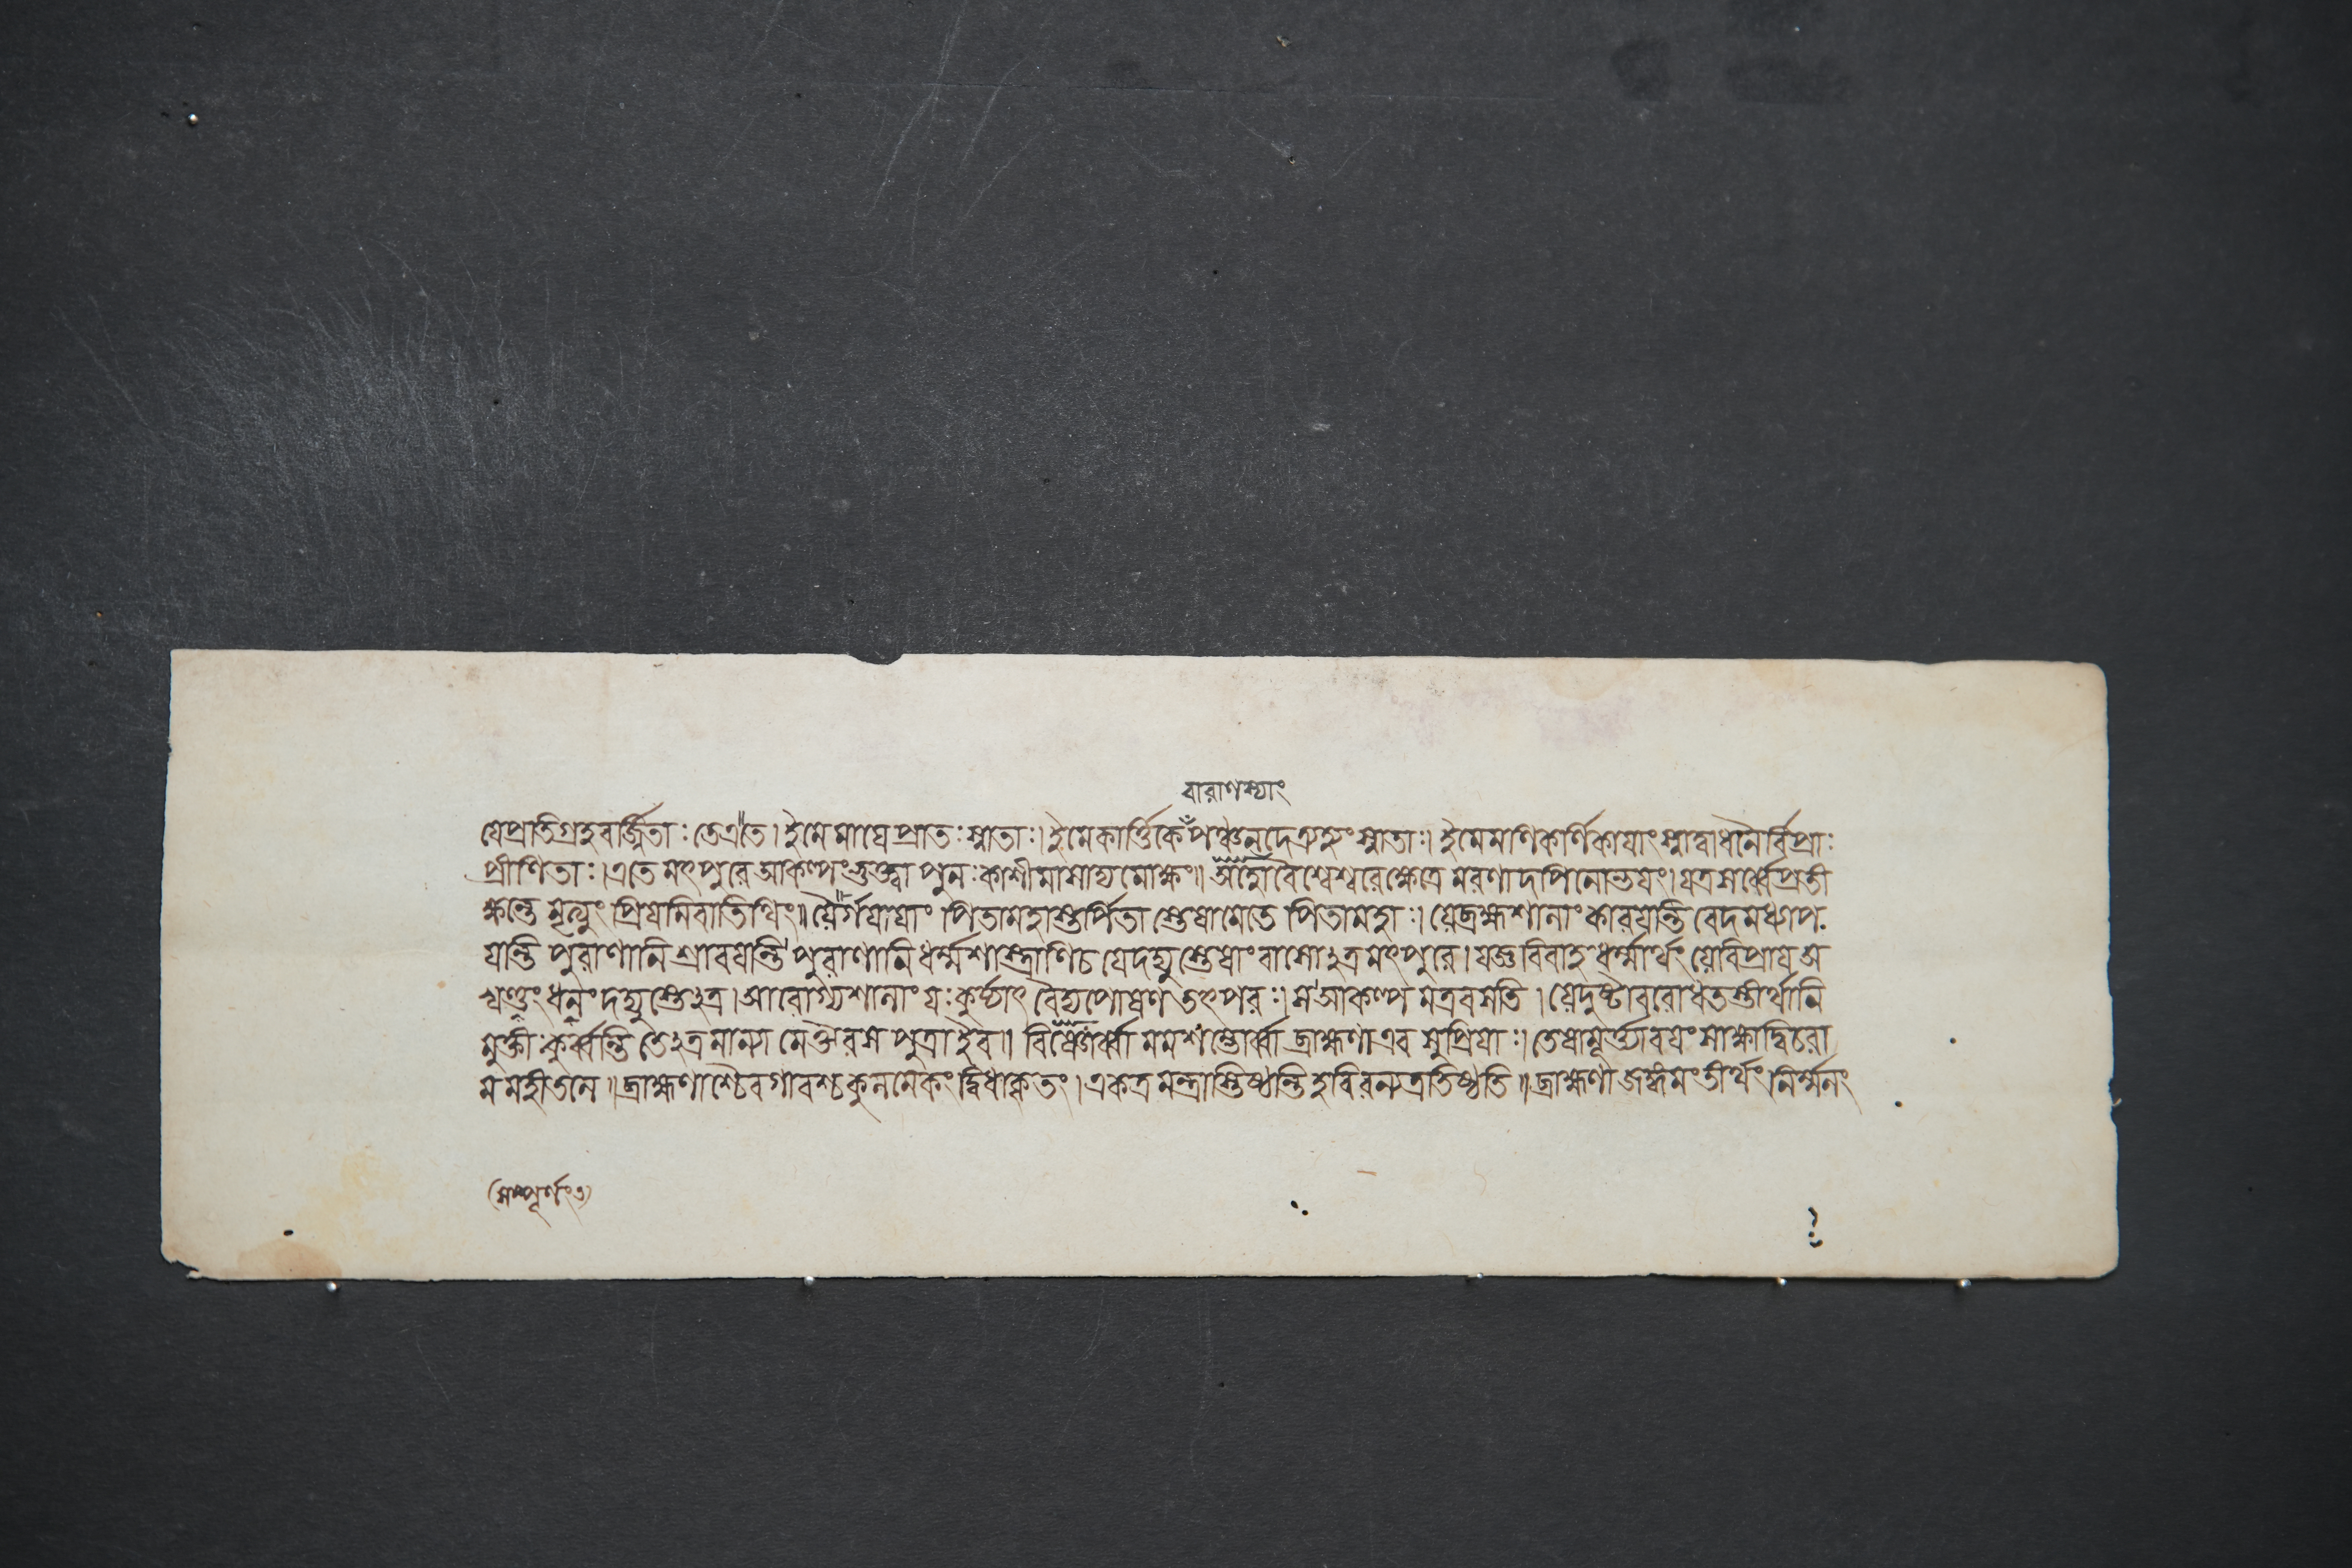 বারাণস্যাং
যেপ্রতিগ্রহবর্জ্জিতাঃ তেএতে। ইমেমাঘেপ্রাতঃস্নাতাঃ। ইমেকার্ত্তিকে পঞ্চনদেত্র্যহংস্নাতাঃ। ইমেমণিকর্ণিকায়াংস্নাত্বাধনৈর্বিপ্রাঃ
প্রীণিতাঃ। এতে মৎপুরেআকল্পংভুক্ত্বা পুনঃকাশীমাসাদ্যমোক্ষং॥ অহো বৈশ্বেশ্বরেক্ষেত্রে মরণাদপিনোভয়ং। যত্রসর্ব্বেপ্রতী
ক্ষন্তে মৃত্যুং প্রিয়মিবাতিথিং॥ যৈর্গয়ায়াং পিতামহাস্তর্পিতা স্তেষামেতে পিতামহাঃ। যেব্রহ্মশালাং কারয়ন্তি বেদমধ্যাপ
য়ন্তি পুরাণানি শ্রাবয়ন্তি পুরাণানি ধর্ম্মশাস্ত্রাণিচ যেদদ্যুস্তেষাংবাসোঽত্রমৎপুরে। যজ্ঞবিবাহধর্ম্মার্থং যেবিপ্রায়অ
খণ্ডং ধনং দদ্যুস্তেঽত্র। আরোগ্যশালাং যঃকুর্য্যাৎ বৈদ্যপোষণতৎপরঃ। সআকল্পমত্রবসেতি। যেদুষ্টাবরোধতস্তীর্থানি
মুক্তীকুর্ব্বন্তি তেঽত্রমান্যা মেঔরসপুত্রাইব॥ বিষ্ণোর্ব্বা মমশম্ভোর্ব্বা ব্রাহ্মণাএব সুপ্রিয়াঃ। তেষামূর্ত্ত্যাবয়ং সাক্ষাদ্বিচরা
মমহীতলে॥ ব্রাহ্মণাশ্চৈবগাবশ্চকুলমেকং দ্বিধাকৃতং। একত্রমন্ত্রাস্তিষ্ঠন্তি হবিরন্যত্রতিষ্ঠতি॥ ব্রাহ্মণাজঙ্গমংতীর্থং নির্ম্মলং
(সম্পূর্ণং৩)